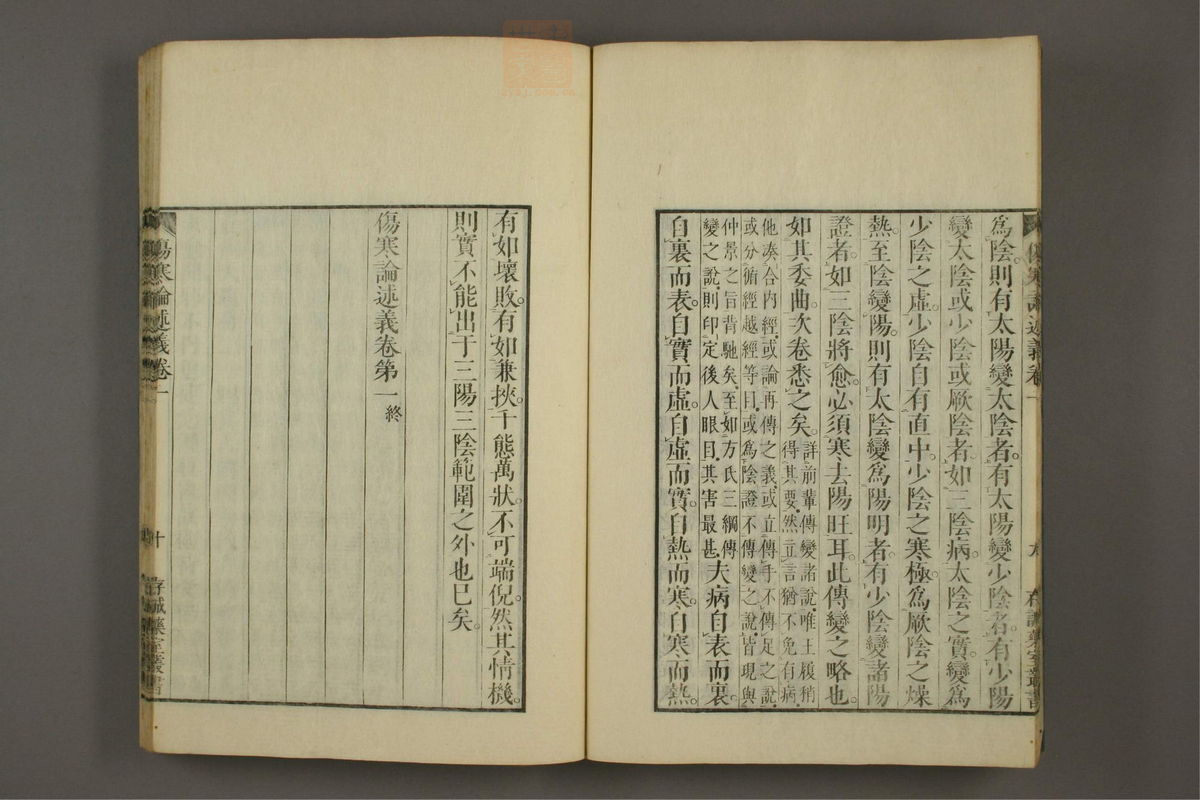 爲陰。則有太陽變太陰者。有太陽變少陰者。有少陽
變太陰或少陰或厥陰者。如三陰病。太陰之實。變爲
少陰之虛。少陰自有直中。少陰之寒極。爲厥陰之燥
熱。至陰變陽。則有太陰變爲陽明者。有少陰變諸陽
證者。如三陰將愈。必須寒去陽旺耳。此傳變之略也。
如其委曲。次卷悉之矣。
詳前輩傳變諸說。唯王履稍
得其要。然立言猶不免有病。
他湊合內經。或論再傳之義。或立傳手不傳足之說。
或分循經越經等目。或爲陰證不傳變之說。皆現與
仲景之旨背馳矣。至如方氏三綱傳
變之說。則印定後人眼目。其害最甚。
夫病自表而裏。
自裏而表。自實而虛。自虛而實。自熱而寒。自寒而熱。
傷寒論述義卷一
九
存誠藥室叢書
有如壞敗。有如兼挾。千態萬狀。不可端倪。然其情機。
則實不能出于三陽三陰範圍之外也已矣。
傷寒論述義卷第一終
傷寒論述義卷一
十
存誠藥室叢書